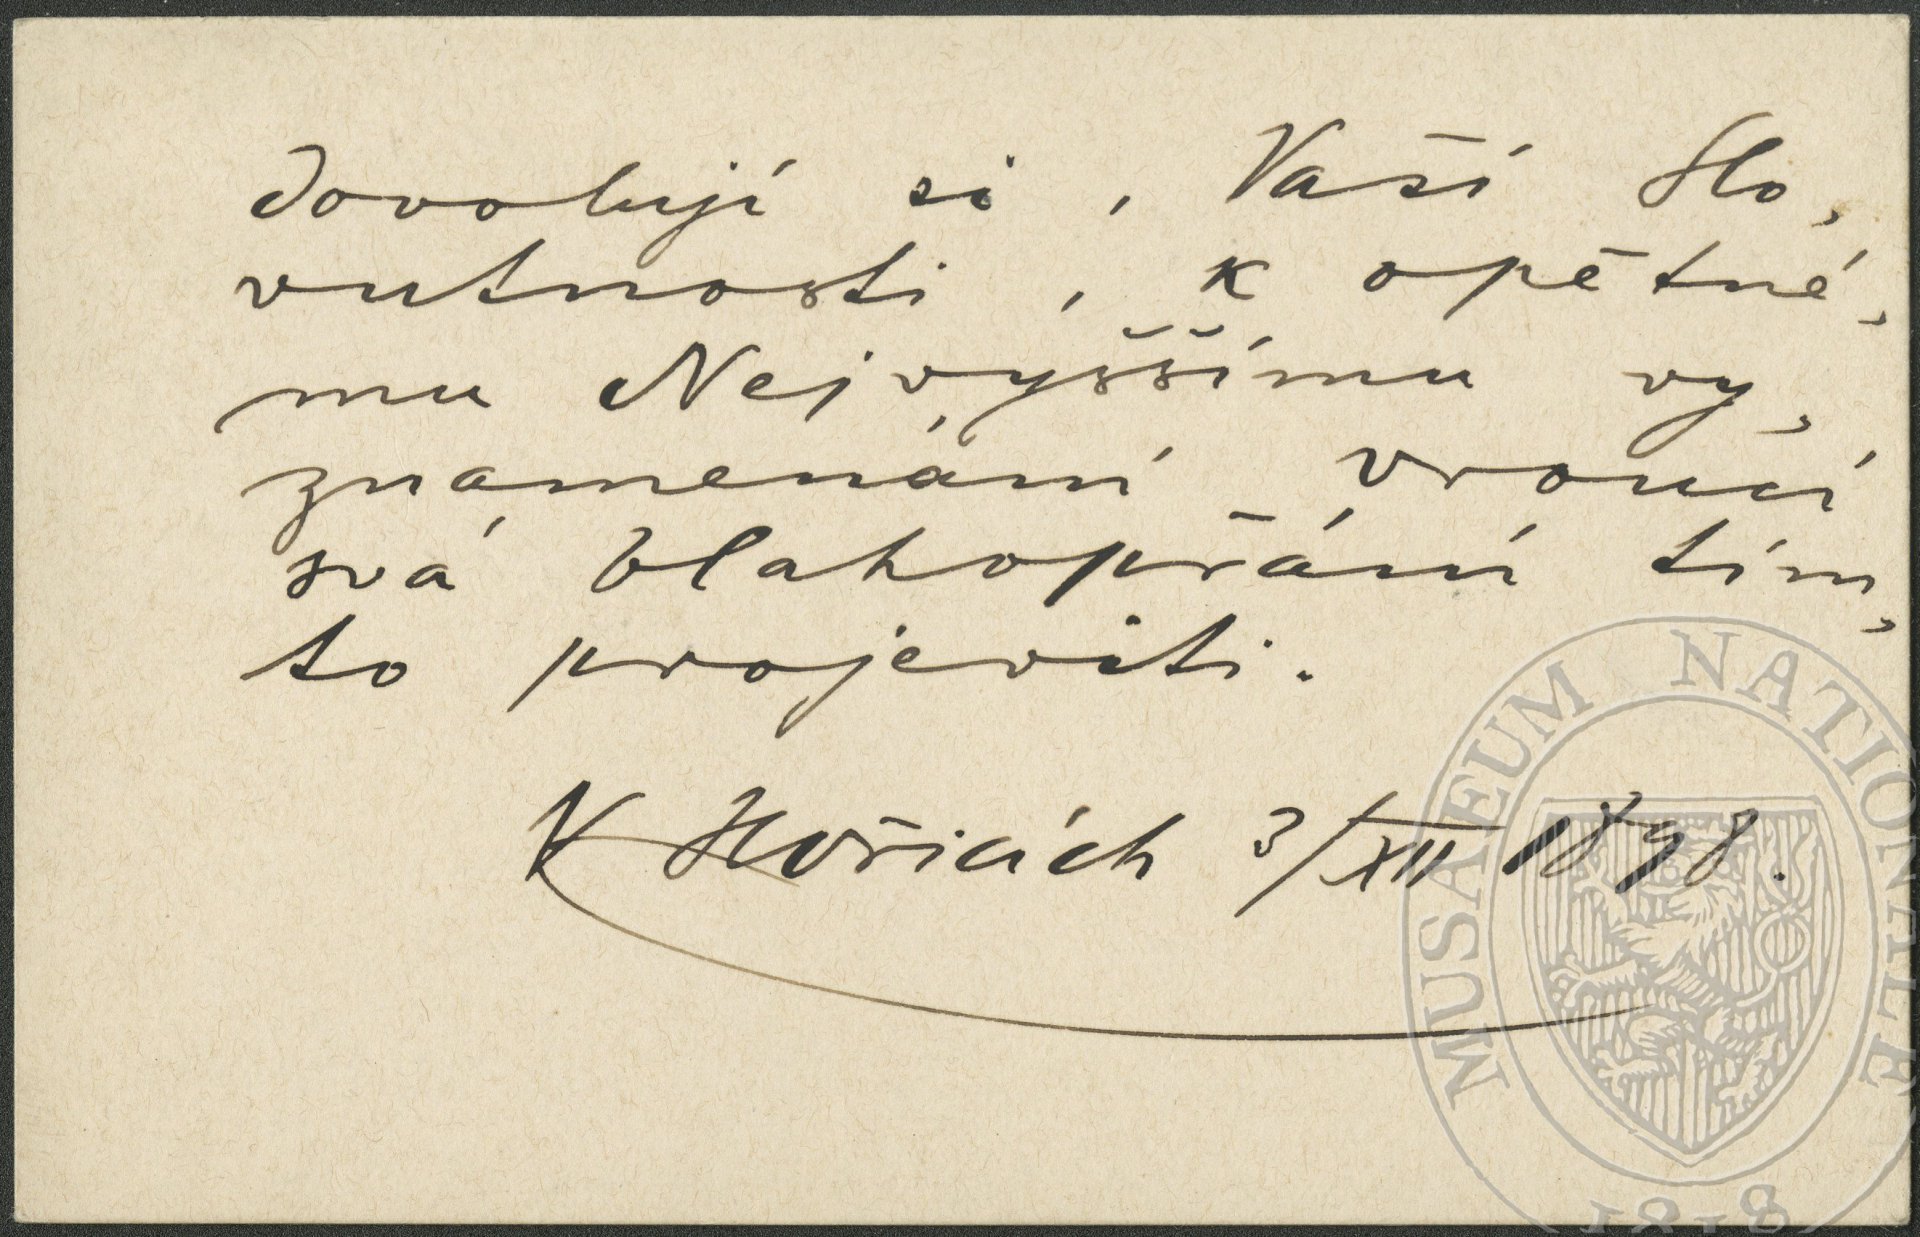 dovolují si, Vaší Slo,
vutnosti, k opětné,
mu Nejvyššímu vy,
znamenání vroucí
svá blahopřání tím,
to projeviti.
V Hořicích 3/XII 1898.
MUSAEUM NATIONALE
1818